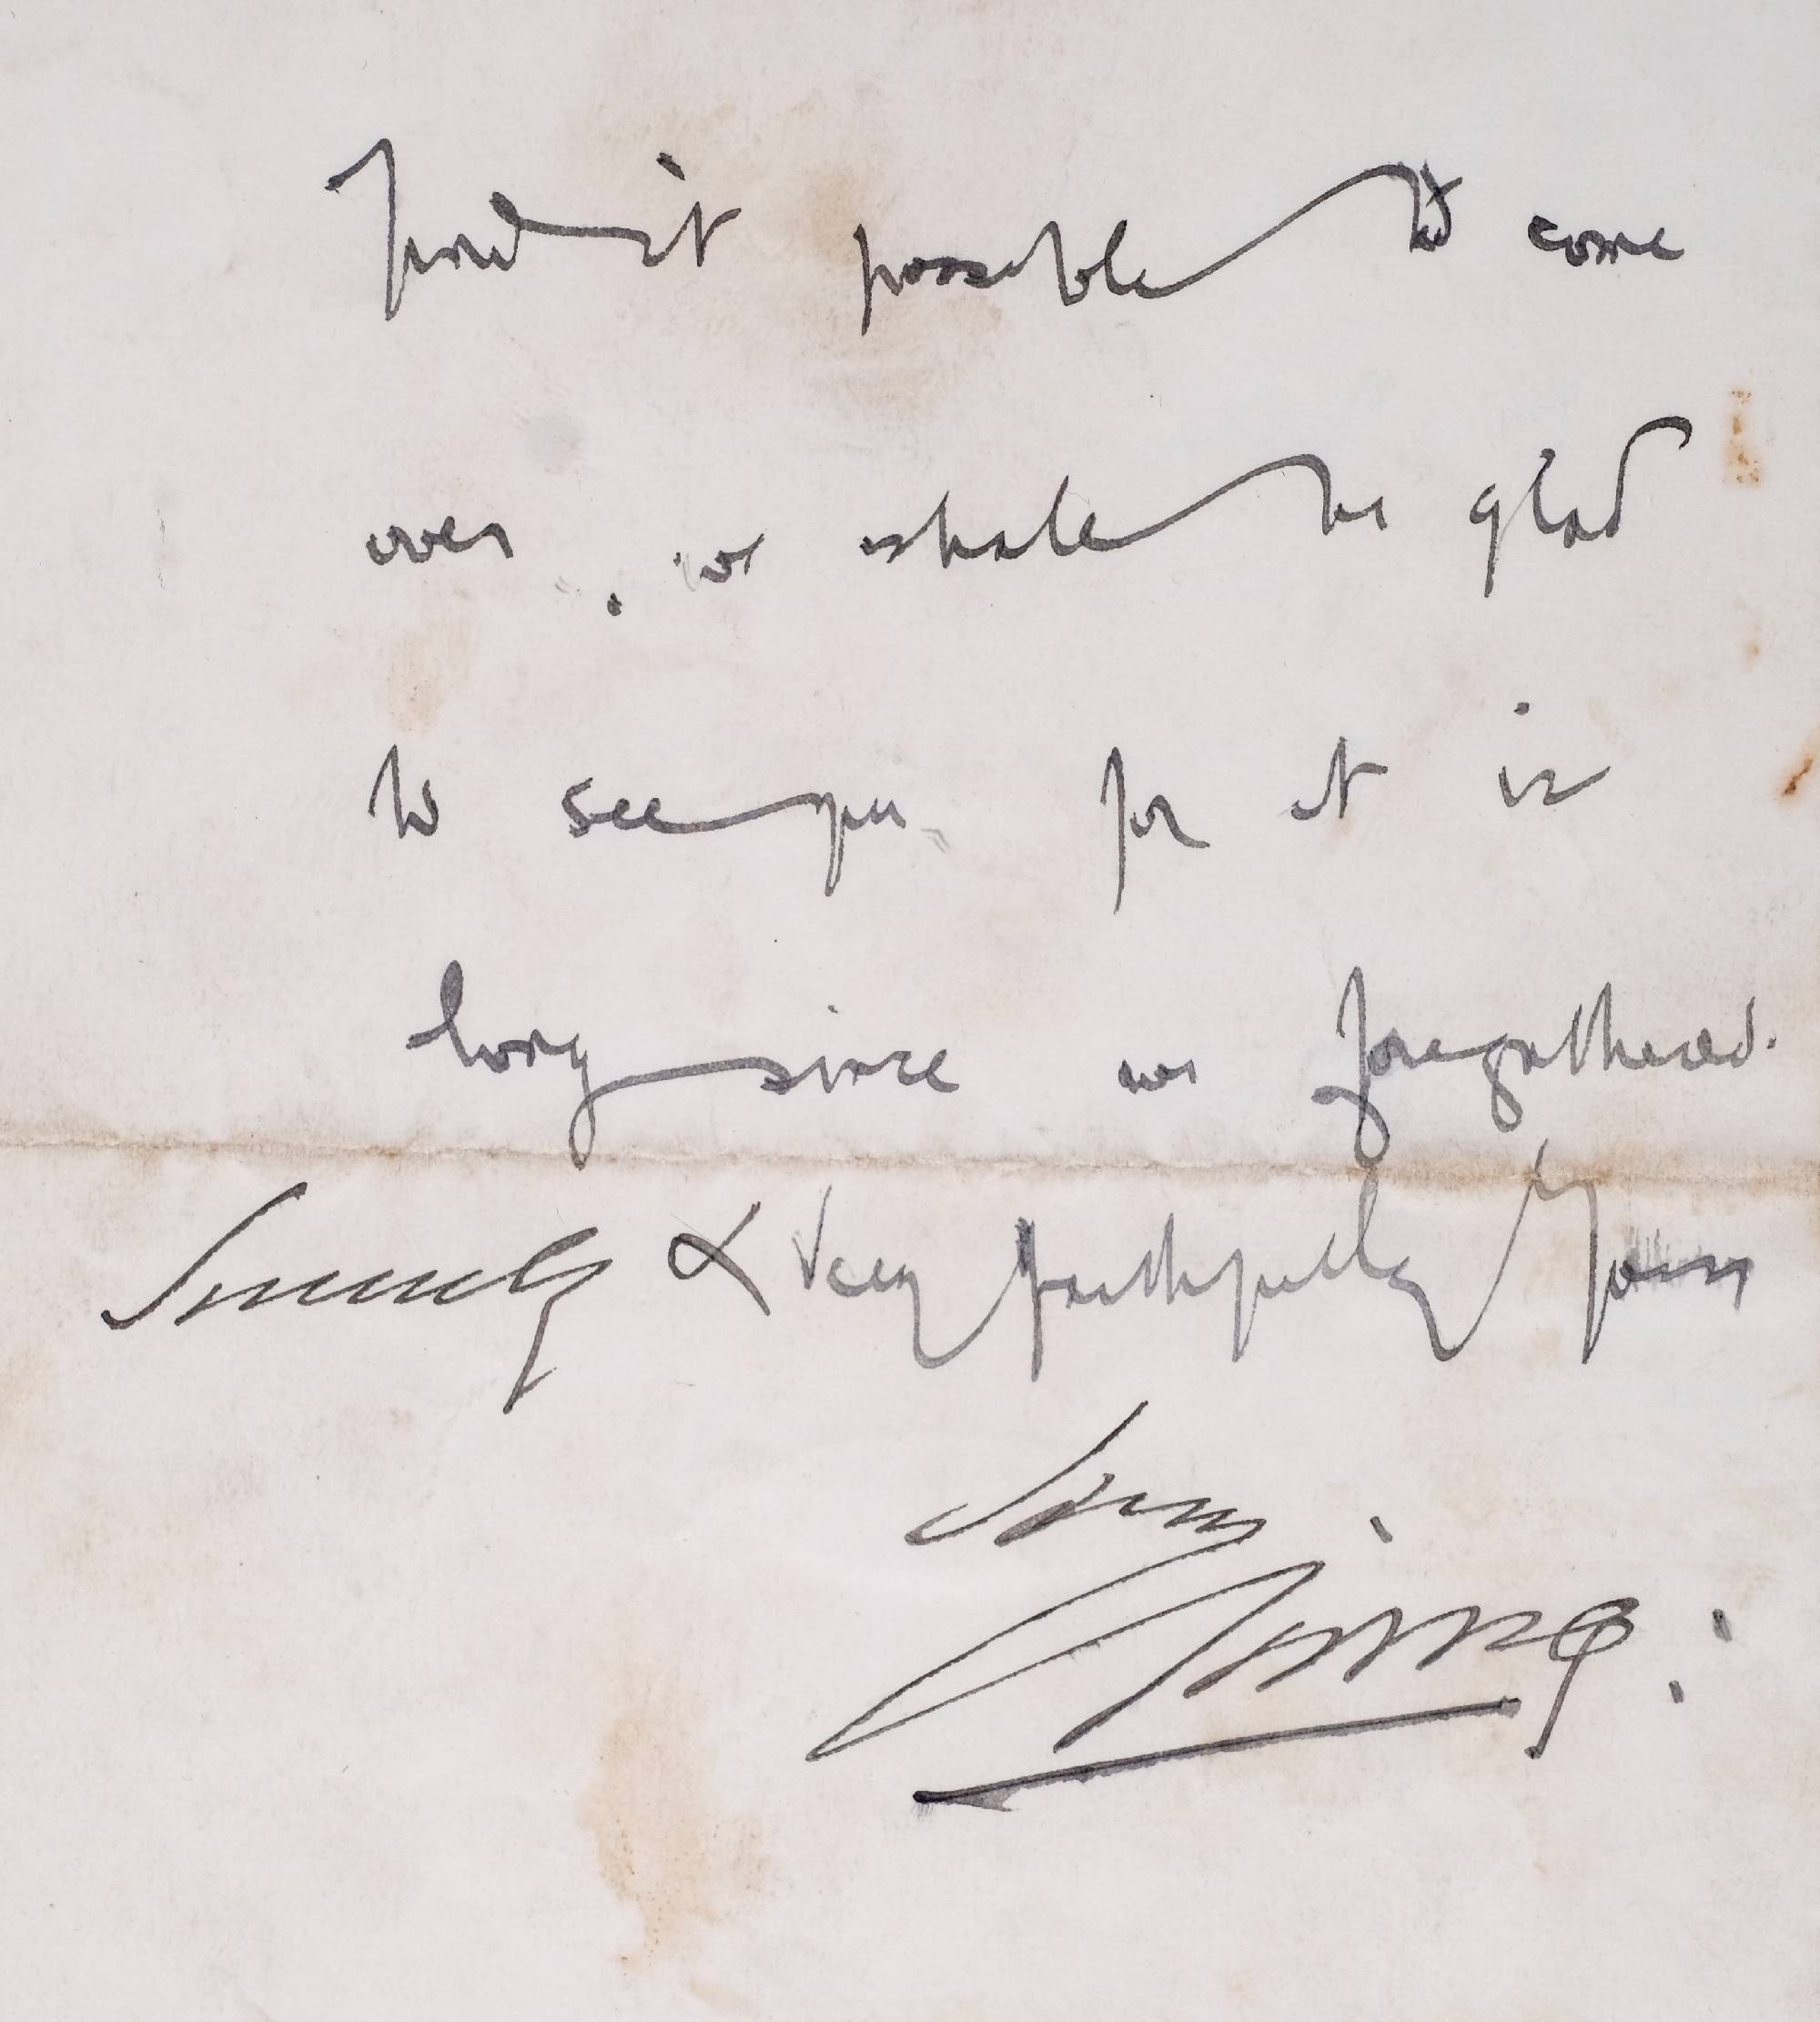 find it possible to come
over, we shall be glad
to see you for it is
long since we foregathered.
Sincerely & Very faithfully Yours